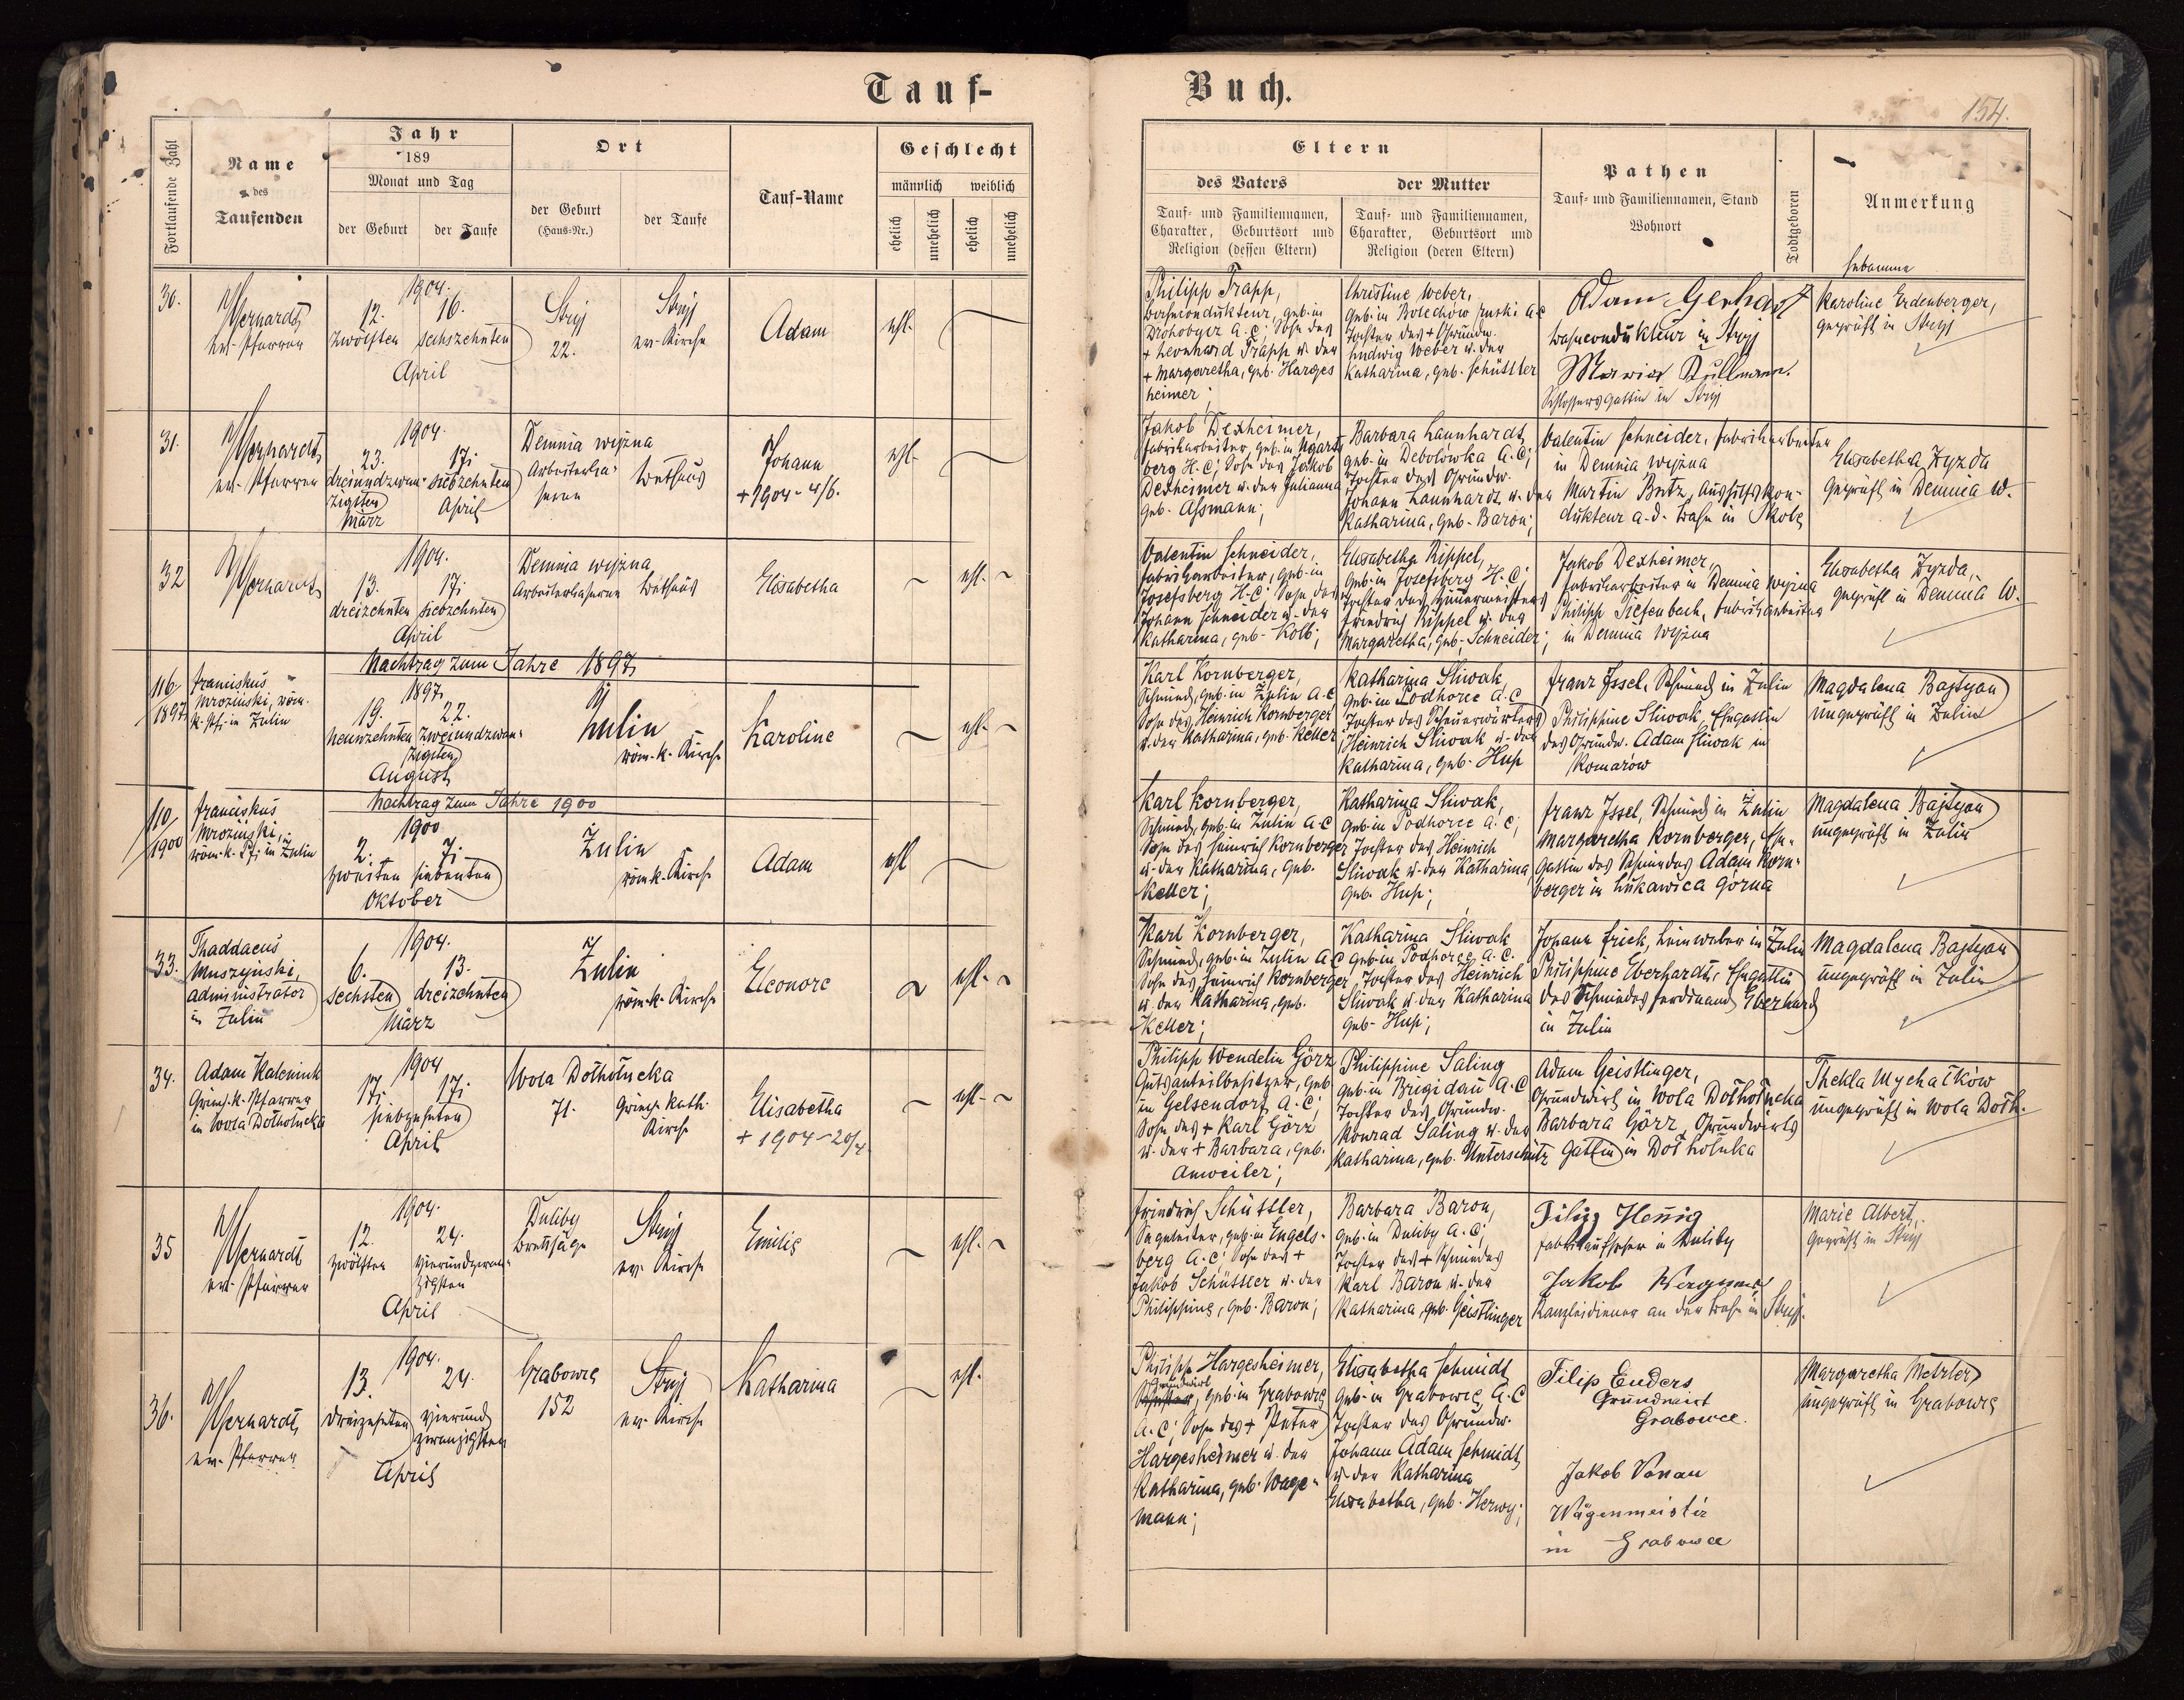 Tauf-
Buch.
154.
Fortlaufende Zahl
Name
des
Taufenden
Jahr
189
Monat und Tag
der Geburt
der Taufe
Ort
der Geburt
(Haus-Nr.)
der Taufe
Tauf-Name
Geschlecht
männlich
weiblich
ehelich
unehelich
ehelich
unehelich
Eltern
des Vaters
Tauf- und Familiennamen,
Charakter, Geburtsort und
Religion (dessen Eltern)
der Mutter
Tauf- und Familiennamen,
Charakter, Geburtsort und
Religion (deren Eltern)
Pathen
Tauf- und Familiennamen, Stand
Wohnort
Todtgeboren
Anmerkung
Hebamme
30.
ev. Pfarrer
1904.
12. 16.
zwölften sechszehnten
April
Stryj
22.
Stryj
ev. Kirche
Adam
ehl.
Philipp Trapp,
Bahnkondukteur, geb. in
Drohobycz A. C; Sohn des
+ Leonhard Trapp u. der
+ Margaretha, geb. Harges
heimer;
Christine Weber,
geb. in Bolechów ruski A.C
Tochter des + Grundw.
Ludwig Weber u. der
Katharina, geb. Schüttler
Adam Gerhardt
Bahncondukteur in Stryj
Maria Kullmann.
Schlossers Gattin in Stryj
Karoline Erdenberger,
geprüft in Stryj
31.
ev. Pfarrer
1904.
23. 17.
dreiundzwan- siebzehnten
zigsten
März April
Demnia wyżna
Arbeiterka-
serne
Bethaus
Johann
+ 1904 - 4/6.
ehl.
Jakob Dexheimer,
Fabriksarbeiter, geb. in Ugarts
berg H.C; Sohn des Jakob
Dexheimer u. der Julianna
geb. Assmann;
Barbara Launhardt,
geb. in Debolówka A.C;
Tochter des Grundw.
Johann Launhardt u. der
Katharina, geb. Baron;
Valentin Schneider, Fabriksarbeiter
in Demnia wyżna
Martin Butz, Aushilfskon-
dukteur a. d. Bahn in Skole
Elisabetha Zyzda
geprüft in Demnia W.
32
1904.
13. 17.
dreizehnten siebzehnten
April
Demnia wyżna
Arbeiterkaserne Bethaus
Elisabetha
ehl.
Valentin Schneider,
Fabriksarbeiter, geb. in
Josefsberg H.C; Sohn des
Johann Schneider u. der
Katharina, geb. Kolb;
Elisabetha Rippel,
geb. in Josefsberg H.C;
Tochter des Zimmermeisters
Friedrich Rippel u. der
Margaretha, geb. Schneider;
Jakob Dexheimer,
Fabriksarbeiter in Demnia wyżna
Philipp Tiefenbach, Fabriksarbeiter
in Demnia wyżna
Elisabetha Zyzda,
geprüft in Demnia W.
Nachtrag zum Jahre 1897
116/
1897
Franciskus
Mroziński, röm.
k. Pf. in Żulin
1897
19. 22.
neunzehnten zweiundzwan-
zigsten
August
Żulin
röm.-k. Kirche
Karoline
ehl.
Karl Kornberger,
Schmied, geb. in Żulin A.C
Sohn des Heinrich Kornberger
u. der Katharina, geb. Keller
Katharina Sliwak,
geb. in Podhorce A.C
Tochter des Scheuerwärters
Heinrich Sliwak u. der
Katharina, geb. Hup
Franz Issel, Schmied in Żulin
Philippine Sliwak, Ehegattin
des Grundw. Adam Sliwak in
Komarów
Magdalena Bajtyan
ungeprüft in Żulin
Nachtrag zum Jahre 1900
110/
1900
Franciskus
Mroziński,
röm.-k. Pf. in Żulin
1900
2. 7.
zweiten siebenten
Oktober
Żulin
röm. k. Kirche
Adam
ehl
Karl Kornberger,
Schmied, geb. in Żulin A.C
Sohn des Heinrich Kornberger
u. der Katharina, geb.
Keller;
Katharina Sliwak,
geb. in Podhorce A. C;
Tochter des Heinrich
Sliwak u. der Katharina,
geb. Hup;
Franz Issel, Schmied in Żulin
Margaretha Kornberger, Ehe-
gattin des Schmiedes Adam Korn-
berger in Łukawica górna
Magdalena Bajtyan
ungeprüft in Żulin
33.
Thaddaeus
Muszyński,
Administrator
in Żulin
1904.
6. 13.
sechsten dreizehnten
März
Żulin
röm.-k. Kirche
Eleonore
ehl.
Karl Kornberger,
Schmied, geb. in Żulin A.C
Sohn des Heinrich Kornberger
u. der Katharina, geb.
Keller;
Katharina Sliwak
geb. in Podhorce A. C.
Tochter des Heinrich
Sliwak u. der Katharina
geb. Hup;
Johann Frick, Leinweber in Żulin
Philippine Eberhardt, Ehegattin
des Schmiedes Ferdinand Eberhard
in Żulin
Magdalena Bajtyan
ungeprüft in Żulin
34.
Adam Kaleniuk
Griech.-k. Pfarrer
in Wola Dołhołucka
1904
17. 17.
siebzehnten
April
Wola Dołhołucka
71. Griech. kath.
Kirche
Elisabetha
+ 1904 - 20/4.
ehl.
Philipp Wendelin Görz
Gutsanteilbesitzer, geb.
in Gelsendorf A.C;
Sohn des + Karl Görz
u. der + Barbara, geb.
Anweiler;
Philippine Saling
geb. in Brigidau A.C
Tochter des Grundw.
Konrad Saling u. der
Katharina, geb. Unterschütz
Adam Geistlinger,
Grundwirt in Wola Dołhołucka
Barbara Görz, Grundwirts
Gattin in Dołhołuka
Thekla Mychałków
ungeprüft in Wola Dołh.
35
ev. Pfarrer
1904.
12. 24.
zwölften vierundzwan-
zigsten
April
Duliby
Brettsäge
Stryj
ev. Kirche
Emilie
ehl.
Friedrich Schüttler,
Sägeleiter, geb. in Engels-
berg A. C; Sohn des +
Jakob Schüttler u. der
Philippine, geb. Baron;
Barbara Baron,
geb. in Duliby A. C;
Tochter des + Schmiedes
Karl Baron u. der
Katharina, geb. Geistlinger
Filip Hennig
Fabriksaufseher in Duliby
Jakob Wagner
Kanzleidiener an der Bahn in Stryj.
Marie Albert,
geprüft in Stryj
36.
ev. Pfarrer
1904.
13. 24.
dreizehnten vierund
zwanzigsten
April
Grabowce
152
Stryj
ev. Kirche
Katharina
ehl.
Philipp Hargesheimer,
Grundwirt
geb. in Grabowce
A. C; Sohn des + Peter
Hargesheimer u. der
Katharina, geb. Wage-
mann;
Elisabetha Schmidt
geb. in Grabowce A.C
Tochter des Grundw.
Johann Adam Schmidt,
u. der Katharina
Elisabetha, geb. Herwy;
Filip Enders
Grundwirt
Grabowce.
Jakob Vonau
Wägenmeister
in Grabowce
Margaretha Metzler
ungeprüft in Grabowce